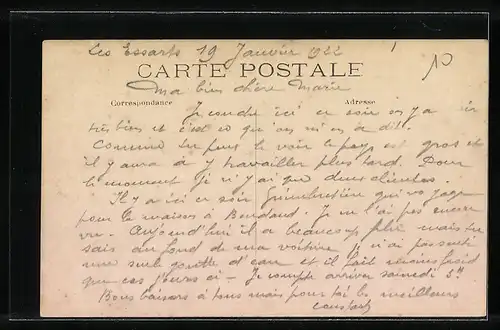 Les Essarts 19 Janvier 1922
CARTE POSTALE
Ma bien chère Marie
Correspondance Adresse
Je couche ici ce soir on y a
très bien et c'est ce qu'on m'en a dit.
Comme tu peux le voir le pays est gros et
il y aura à y travailler plus tard. Pour
le moment je n'y ai que deux clients.
Il y a ici ce soir qui voyage
pour la maison à Bardaud. Je ne l'ai pas encore
vu. Aujourd'hui il a beaucoup plu mais tu
sais au fond de ma voiture je n'ai pas senti
une seule goutte d'eau et il fait moins froid
que ces jours ci - Je compte arriver samedi
Bons baisers à tous mais pour toi les meilleurs
Constant